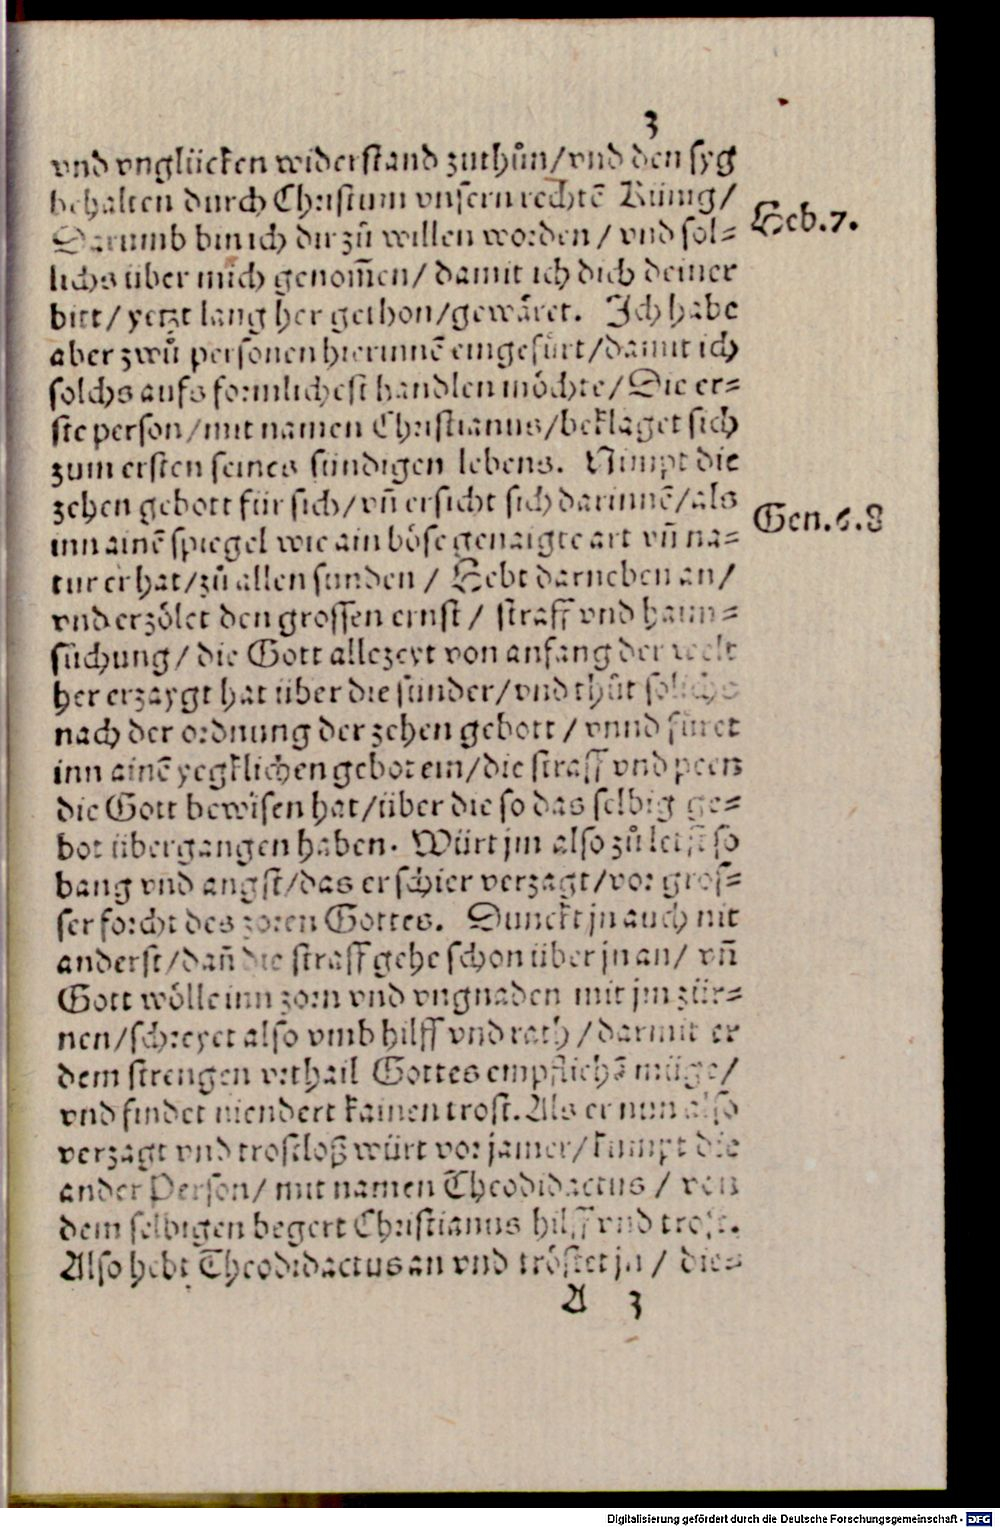 3
vnd vnglücken widerstand zuthůn/vnd den syg
behalten durch Christum vnsern rechtē Künig/
Darumb bin ich dir zů willen worden / vnd sol=
Heb.7.
lichs über mich genom̄en/ damit ich dich deiner
bitt/ yetzt lang her gethon/gewåret. Ich habe
aber zwů personen hierinnē eingefürt/damit ich
solchs aufs formlichest handlen möchte/ Die er=
ste person/mit namen Christianus/beklaget sich
zum ersten seines sündigen lebens. Nimpt die
zehen gebott für sich/ vn̄ ersicht sich darinnē/als
Gen.6.8
inn ainē spiegel wie ain böse genaigte art vn̄ na=
tur er hat/zů allen sunden / Hebt darneben an/
vnd erzölet den grossen ernst/ straff vnd haim=
sůchung/ die Gott allezeyt von anfang der welt
her erzaygt hat über die sünder/vnd thůt solichs
nach der ordnung der zehen gebott / vnnd füret
inn ainē yegklichen gebot ein/die straff vnd peen
die Gott bewisen hat/über die so das selbig ge=
bot übergangen haben. Würt jm also zů letst so
bang vnd angst/das er schier verzagt/vor gros=
ser forcht des zoren Gottes. Dunckt jn auch nit
anderst/dan̄ die straff gehe schon über jn an/ vn̄
Gott wölle inn zorn vnd vngnaden mit jm zür=
nen/schreyet also vmb hilff vnd rath/darmit er
dem strengen vrthail Gottes empfliehē müge/
vnd findet niendert kainen trost. Als er nun also
verzagt vnd trostloß würt vor jamer/ kumpt die
ander Person/ mit namen Theodidactus / von
dem selbigen begert Christianus hilff vnd trost.
Also hebt Theodidactus an vnd tröstet jn / die=
A 3
Digitalisierung gefördert durch die Deutsche Forschungsgemeinschaft - DFG